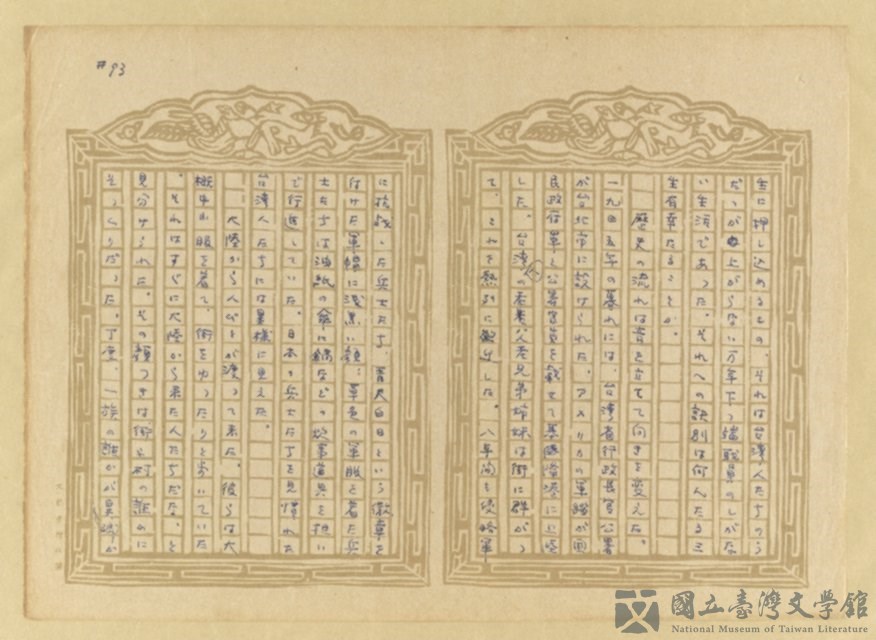 #93
生に押し込めるもの、それは台湾人たちのう
だつが上がらない万年下っ端職員のしがな
い生活であった。それへの訣別は何んたる三
生有幸たることか。
歴史の流れは音を立てて向きを変えた。
一九四五年の暮れには、台湾省行政長官公署
が台北市に設けられた。アメリカの軍船が国
民政府軍と公署官員を載せて基隆港に上陸
した。台湾の老若父老兄弟姉妹は街に群がっ
て、これを熱烈に歓迎した。八年間も侵略軍
に抗戦した兵士たち、青天白日という徽章を
付けた軍帽に浅黒い顔、草色の軍服を着た兵
士たちは油紙の傘に鍋などの炊事道具を担い
で行進していた。日本の兵士たちを見慣れた
台湾人たちには異様に見えた。
大陸から人びとが渡って来た。彼らは大
概中山服を着て、街をゆったりと歩いていた
。それはすぐに大陸から来た人たちだな、と
見分けられた。その顔つきは街と村の誰かに
そっくりだった。丁度、一族の誰かが異郷か
國立臺灣文學館
National Museum of Taiwan Literature